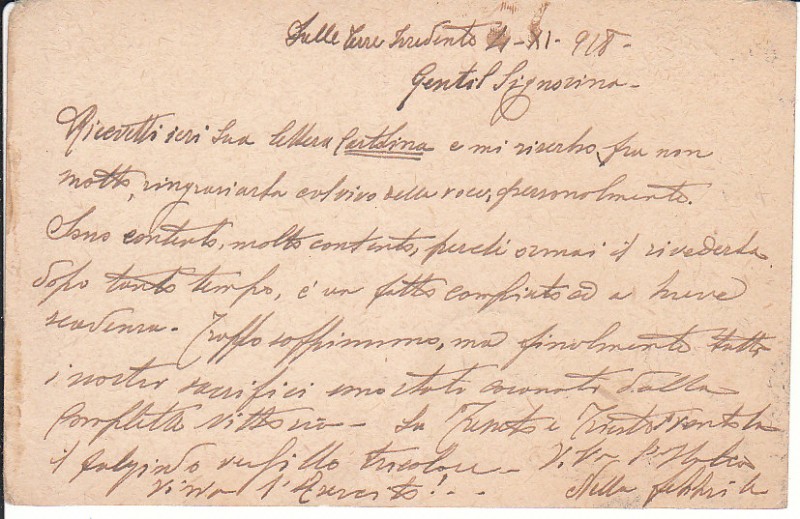 Sulle Terre Irredente 4-XI-918-
Gentil Signorina-
Ricevetti ieri sua lettera Cartolina e mi riserbo, fra non
molto, ringraziarla col vivo della voce, personalmente.
Sono contento, molto contento, perché ormai il rivederla
dopo tanto tempo, è un fatto compiuto ed a breve
scadenza- Troppo soffrimmo, ma finalmente tutti
i nostri sacrifici sono stati coronati dalla
completa vittoria- Su Trento e Trieste sventola
il fulgido vessillo tricolore- V.Va l'Italia
Viva l'Esercito!- Nella febbrile